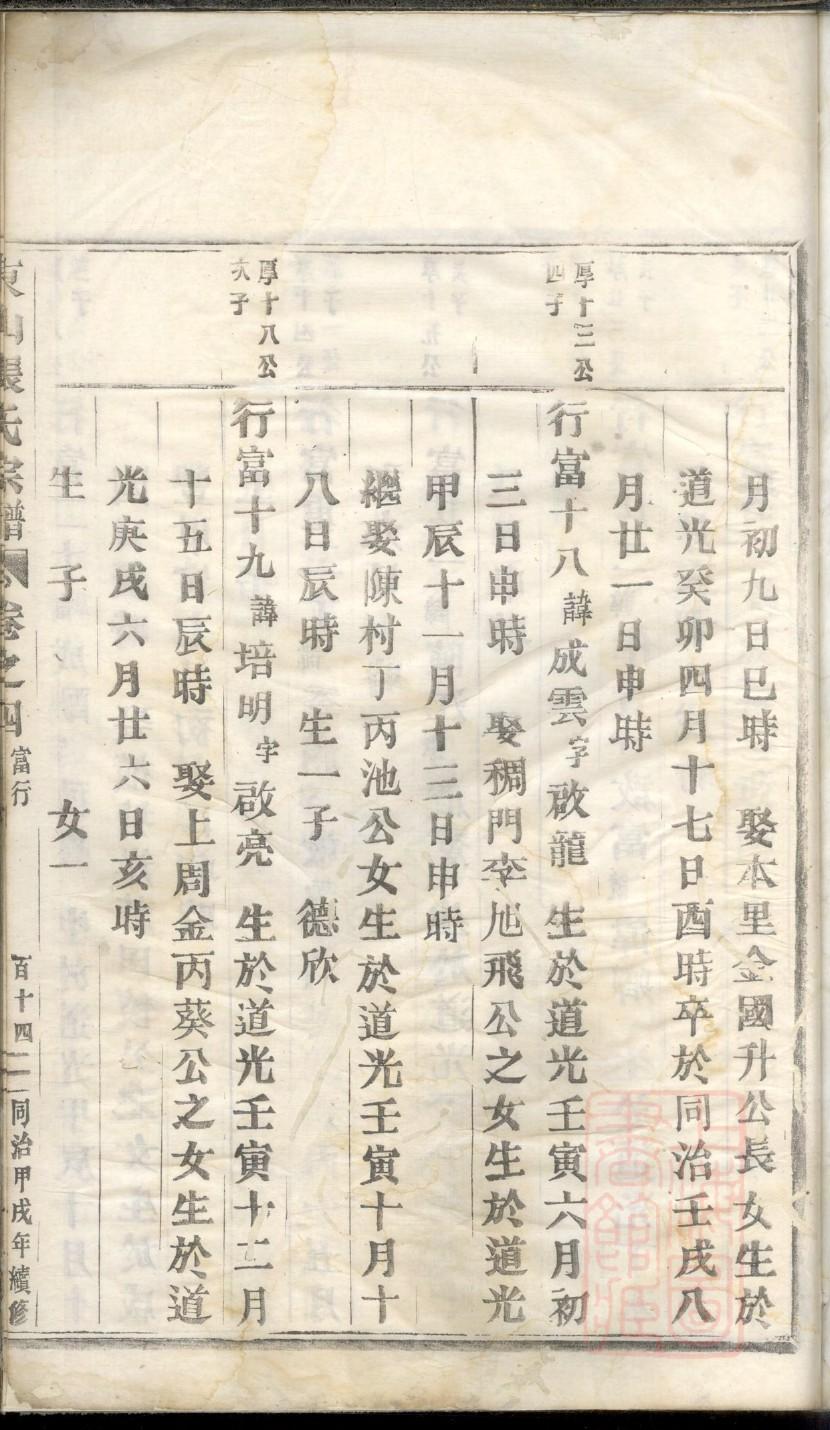 月初九日巳時　娶本里金國升公長女生於
道光癸卯四月十七日酉時卒於同治壬戌八
月廿一日申時
厚十三公
四子
行富十八諱成雲字啟龍　生於道光壬寅六月初
三日申時　娶稠門李旭飛公之女生於道光
甲辰十一月十三日申時
繼娶陳村丁丙池公女生於道光壬寅十月十
八日辰時　生一子　德欣
厚十八公
次子
行富十九諱培明字啟亮　生於道光壬寅十二月
十五日辰時　娶上周金丙葵公之女生於道
光庚戌六月廿六日亥時
生　子　　女一
東山張氏宗譜　卷之四　富行　百十四　同治甲戌年續修